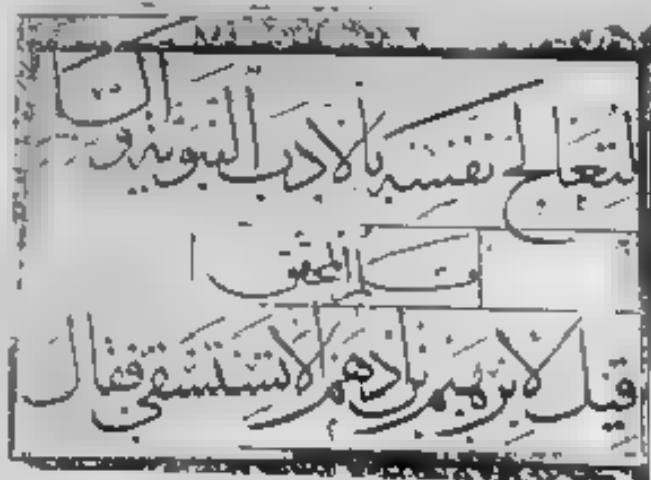 لتعالج نفسه بالادب النبوية
قلم المحقق
قيل لابرهيم بن ادهم الا تستسقي فقال